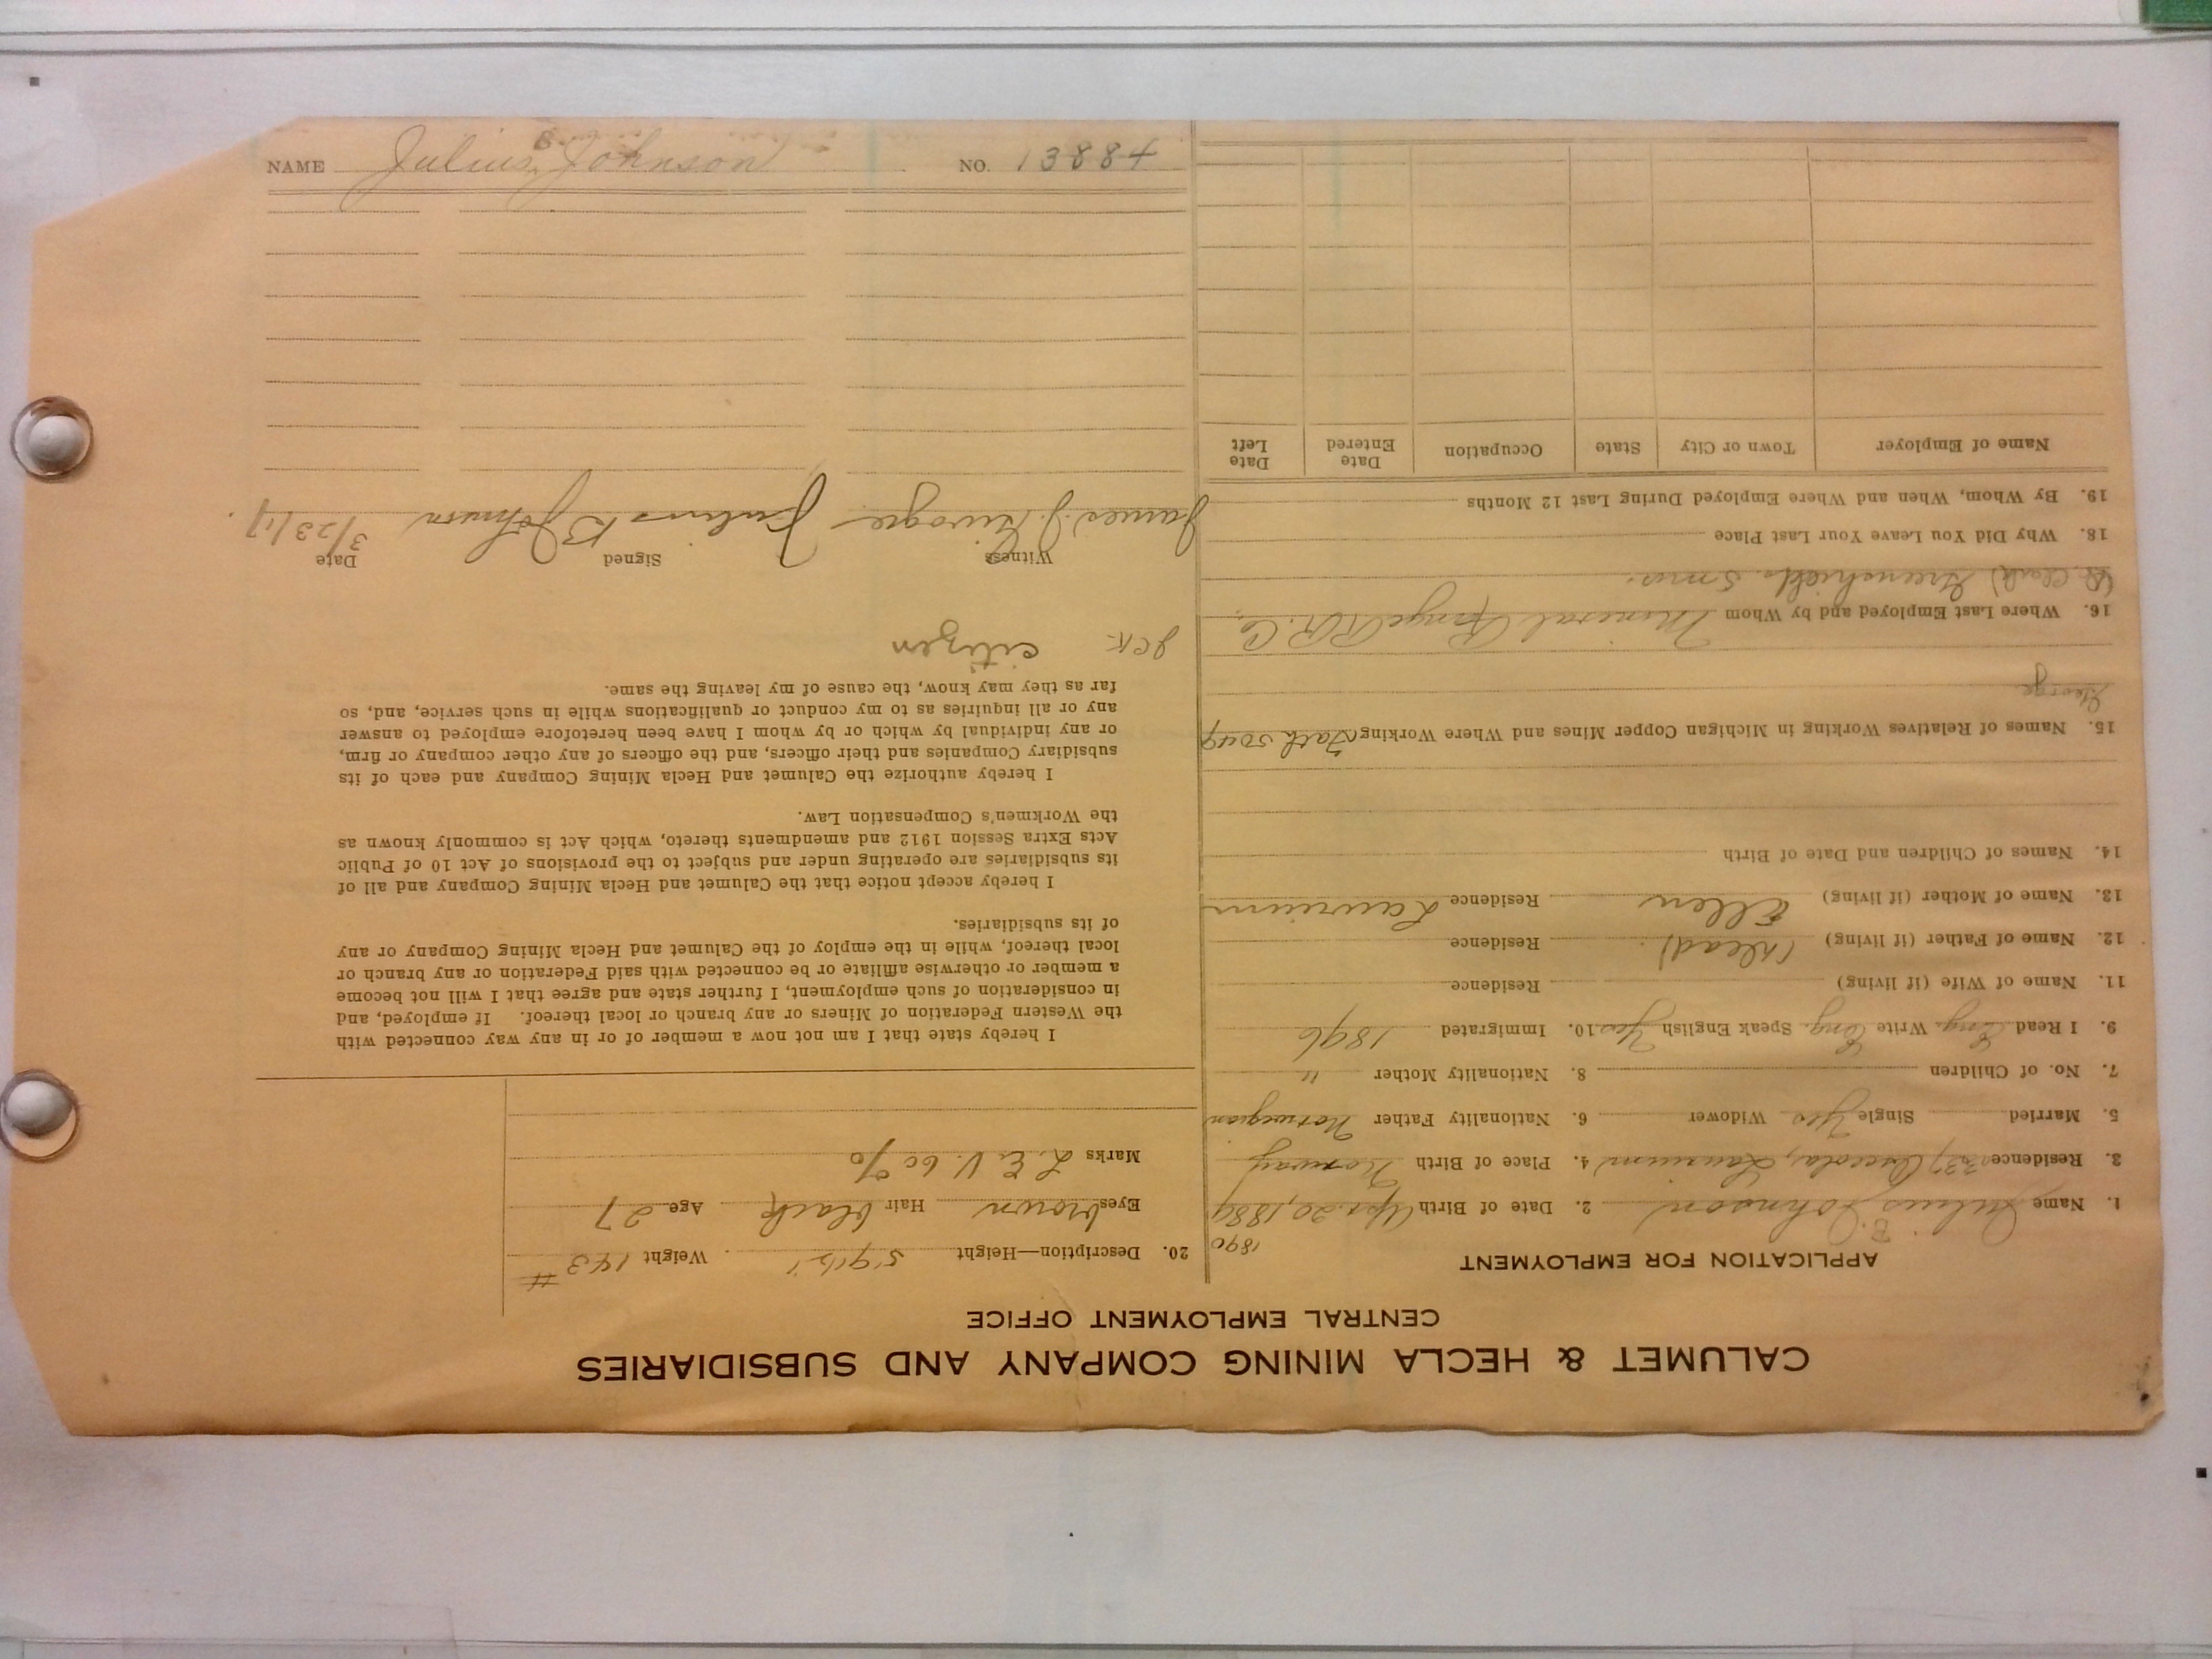 CALUMET & HECLA MINING COMPANY AND SUBSIDIARIES
CENTRAL EMPLOYMENT OFFICE
APPLICATION FOR EMPLOYMENT
1890
1. Name Julius B. Johnson 2. Date of Birth Apr. 20, 1889
3. Residence 337 Osceola, Laurium 4. Place of Birth Norway
5. Married Single Yes Widower 6. Nationality Father Norwegian
7. No. of Children 8. Nationality Mother "
9. I Read Eng. Write Eng. Speak English Yes 10. Immigrated 1896
11. Name of Wife (if living) Residence
12. Name of Father (if living) (dead) Residence
13. Name of Mother (if living) Ellen Residence Laurium
14. Names of Children and Date of Birth
15. Names of Relatives Working in Michigan Copper Mines and Where Working
George
16. Where Last Employed and by Whom Mineral Range R.R. Co.
18. Why Did You Leave Your Last Place
19. By Whom, When and Where Employed During Last 12 Months
Name of Employer Town or City State Occupation Date Entered Date Left
20. Description—Height Weight 143 #
Eyes brown Hair black Age 27
Marks L. E. V. 60%
I hereby state that I am not now a member of or in any way connected with
the Western Federation of Miners or any branch or local thereof. If employed, and
in consideration of such employment, I further state and agree that I will not become
a member or otherwise affiliate or be connected with said Federation or any branch or
local thereof, while in the employ of the Calumet and Hecla Mining Company or any
of its subsidiaries.
I hereby accept notice that the Calumet and Hecla Mining Company and all of
its subsidiaries are operating under and subject to the provisions of Act 10 of Public
Acts Extra Session 1912 and amendments thereto, which Act is commonly known as
the Workmen's Compensation Law.
I hereby authorize the Calumet and Hecla Mining Company and each of its
subsidiary Companies and their officers, and the officers of any other company or firm,
or any individual by which or by whom I have been heretofore employed to answer
any or all inquiries as to my conduct or qualifications while in such service, and, so
far as they may know, the cause of my leaving the same.
citizen
Witness Signed Date
James J. Julius B Johnson 3/23/17
NAME Julius B. Johnson NO. 13884